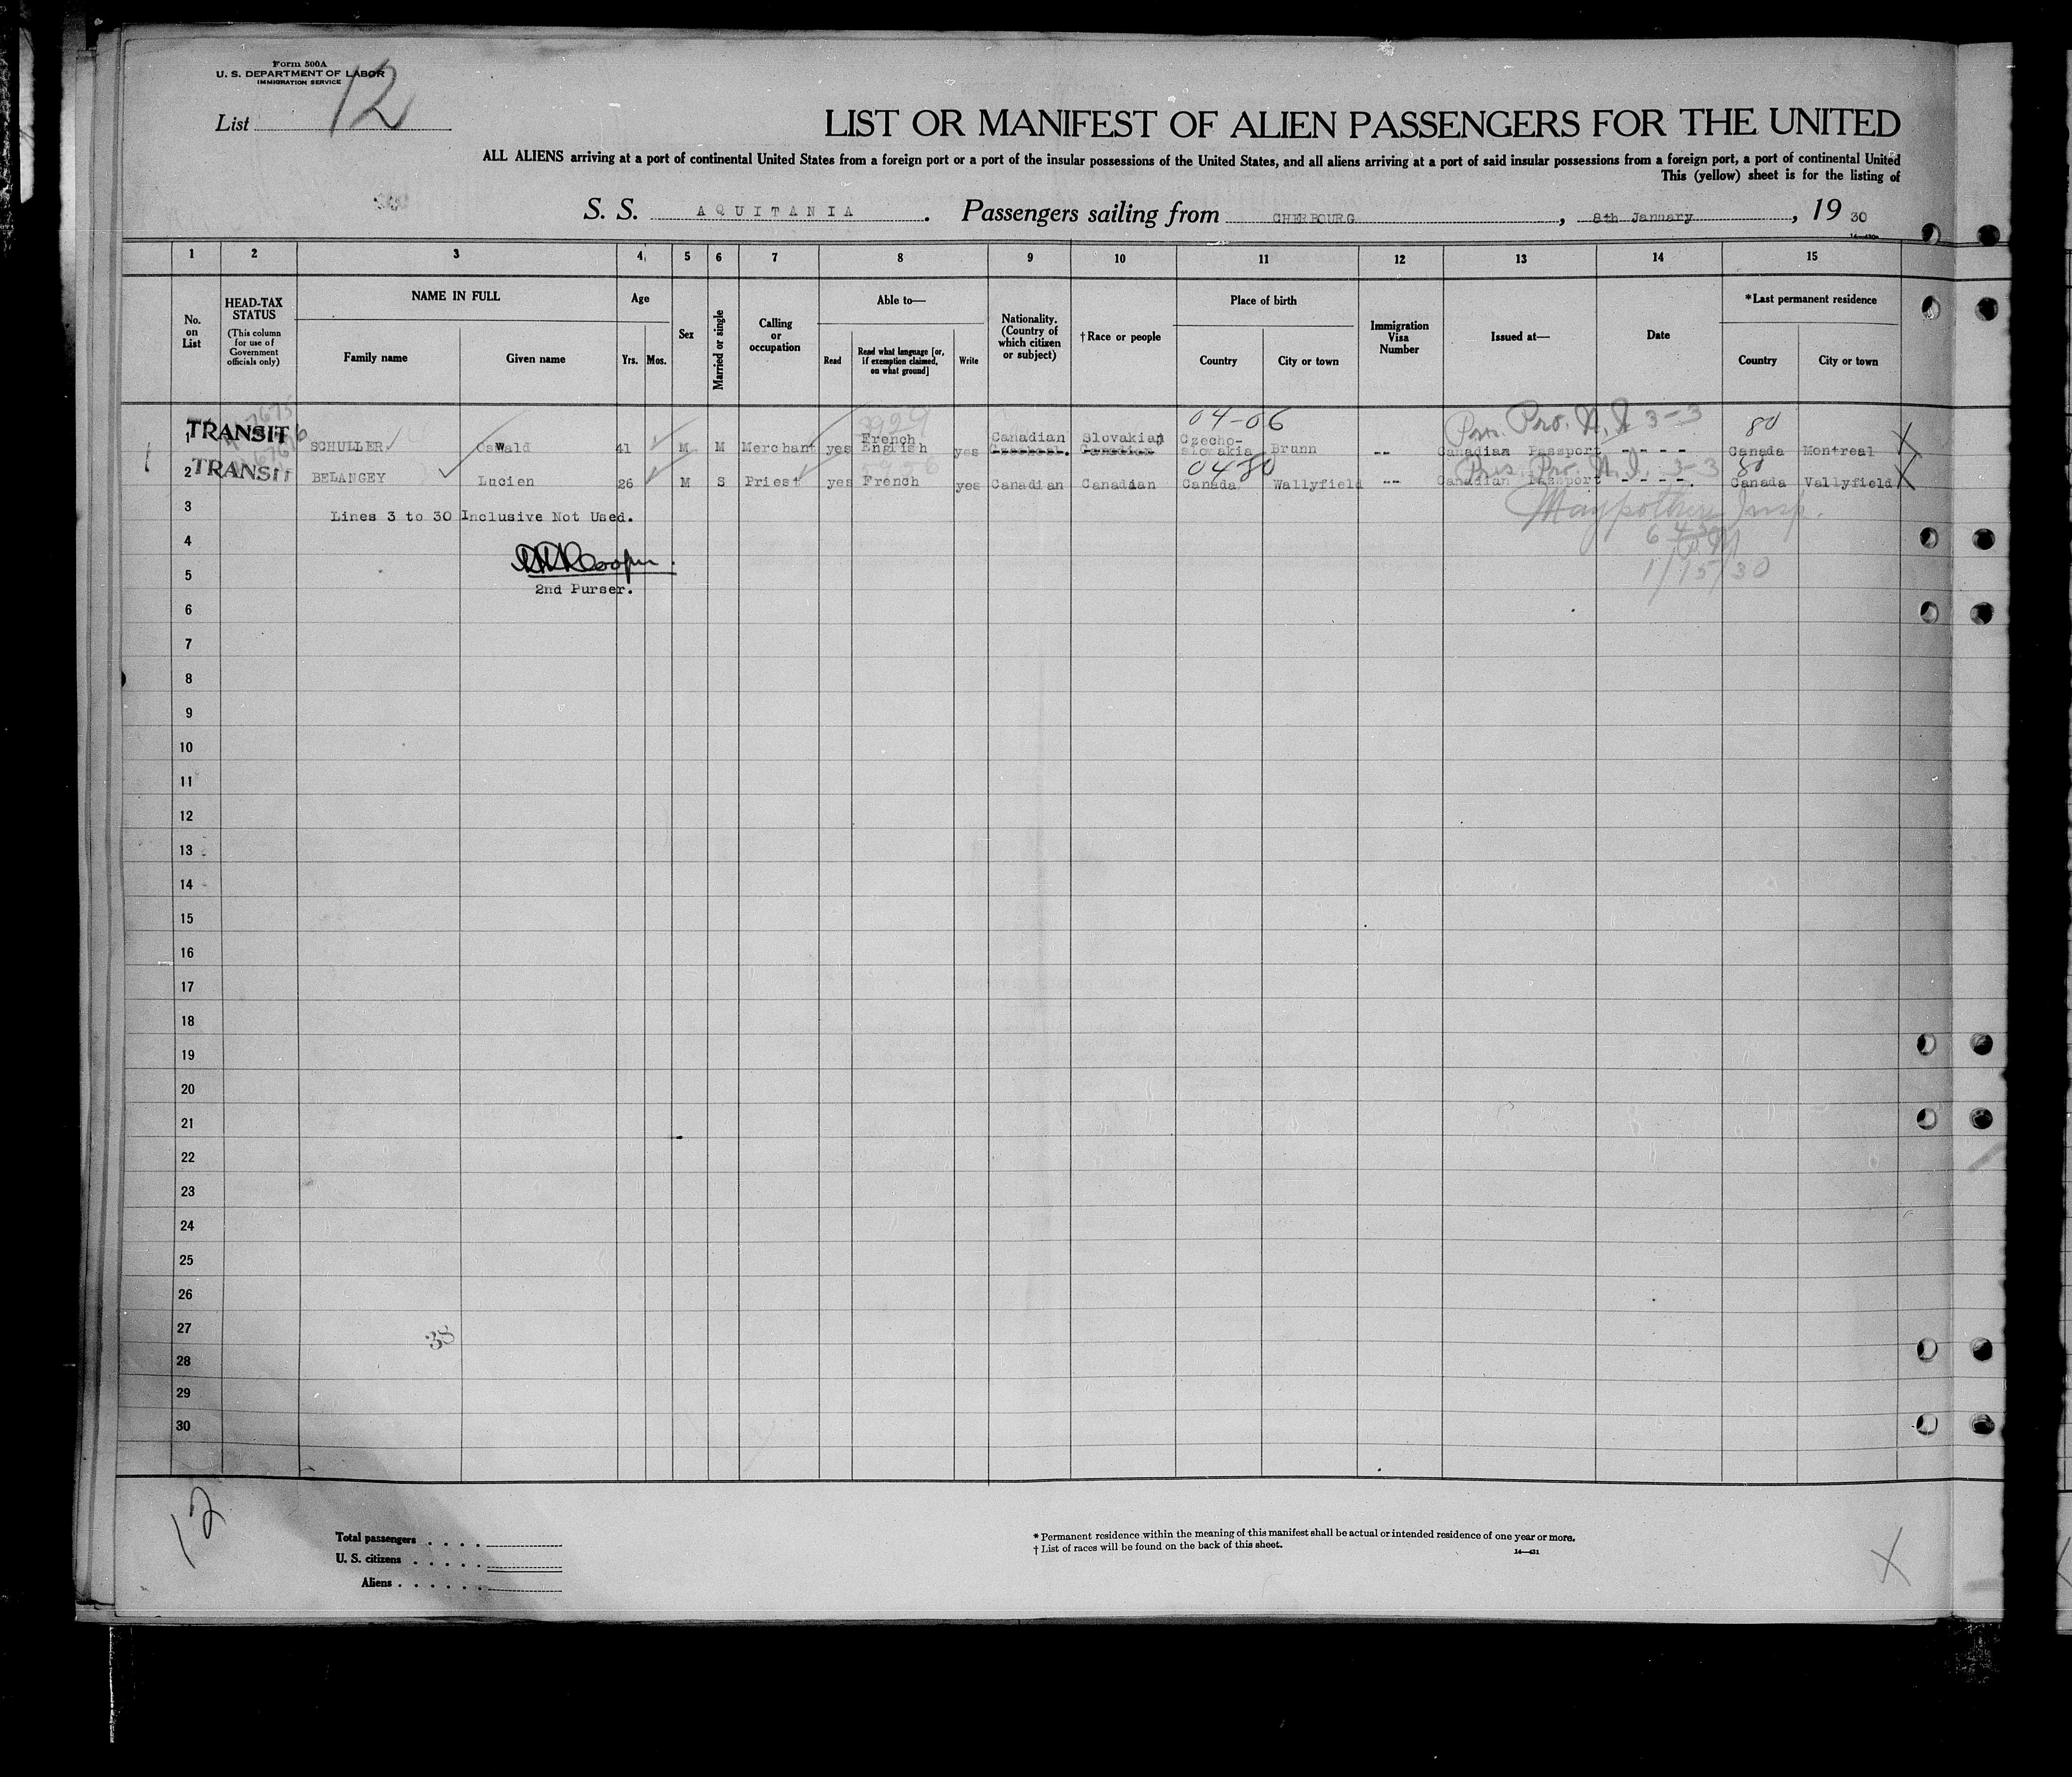 Form 500A
U. S. DEPARTMENT OF LABOR
IMMIGRATION SERVICE
List 12
LIST OR MANIFEST OF ALIEN PASSENGERS FOR THE UNITED
ALL ALIENS arriving at a port of continental United States from a foreign port or a port of the insular possessions of the United States, and all aliens arriving at a port of said insular possessions from a foreign port, a port of continental United
This (yellow) sheet is for the listing of
S. S. AQUITANIA. Passengers sailing from CHERBOURG, 8th January, 19 30
1 2 3 4 5 6 7 8 9 10 11 12 13 14 15
No. on List
HEAD-TAX STATUS (This column for use of Government officials only)
NAME IN FULL
Family name Given name
Age
Yrs. Mos.
Sex
Married or single
Calling or occupation
Able to—
Read
Read what language [or, if exemption claimed, on what ground]
Write
Nationality. (Country of which citizen or subject)
†Race or people
Place of birth
Country City or town
Immigration Visa Number
Issued at—
Date
*Last permanent residence
Country City or town
04-06 Pro. 3-3 80
1 TRANSIT SCHULLER Oswald 41 M M Merchant yes French English yes Canadian Slovakian Czecho-slovakia Brunn -- Canadian Passport - - - - Canada Montreal X
0480 Pro. 3-3 80
2 TRANSIT BELANGEY Lucien 26 M S Priest yes French yes Canadian Canadian Canada Wallyfield -- Canadian Passport - - - - Canada Vallyfield X
3 Lines 3 to 30 Inclusive Not Used.
Insp.
4
Cooper.
1/15/30
5
2nd Purser.
6
7
8
9
10
11
12
13
14
15
16
17
18
19
20
21
22
23
24
25
26
27
38
28
29
30
12
Total passengers . . . .
U. S. citizens . . . . .
Aliens . . . . . .
* Permanent residence within the meaning of this manifest shall be actual or intended residence of one year or more.
† List of races will be found on the back of this sheet.
14—431
X